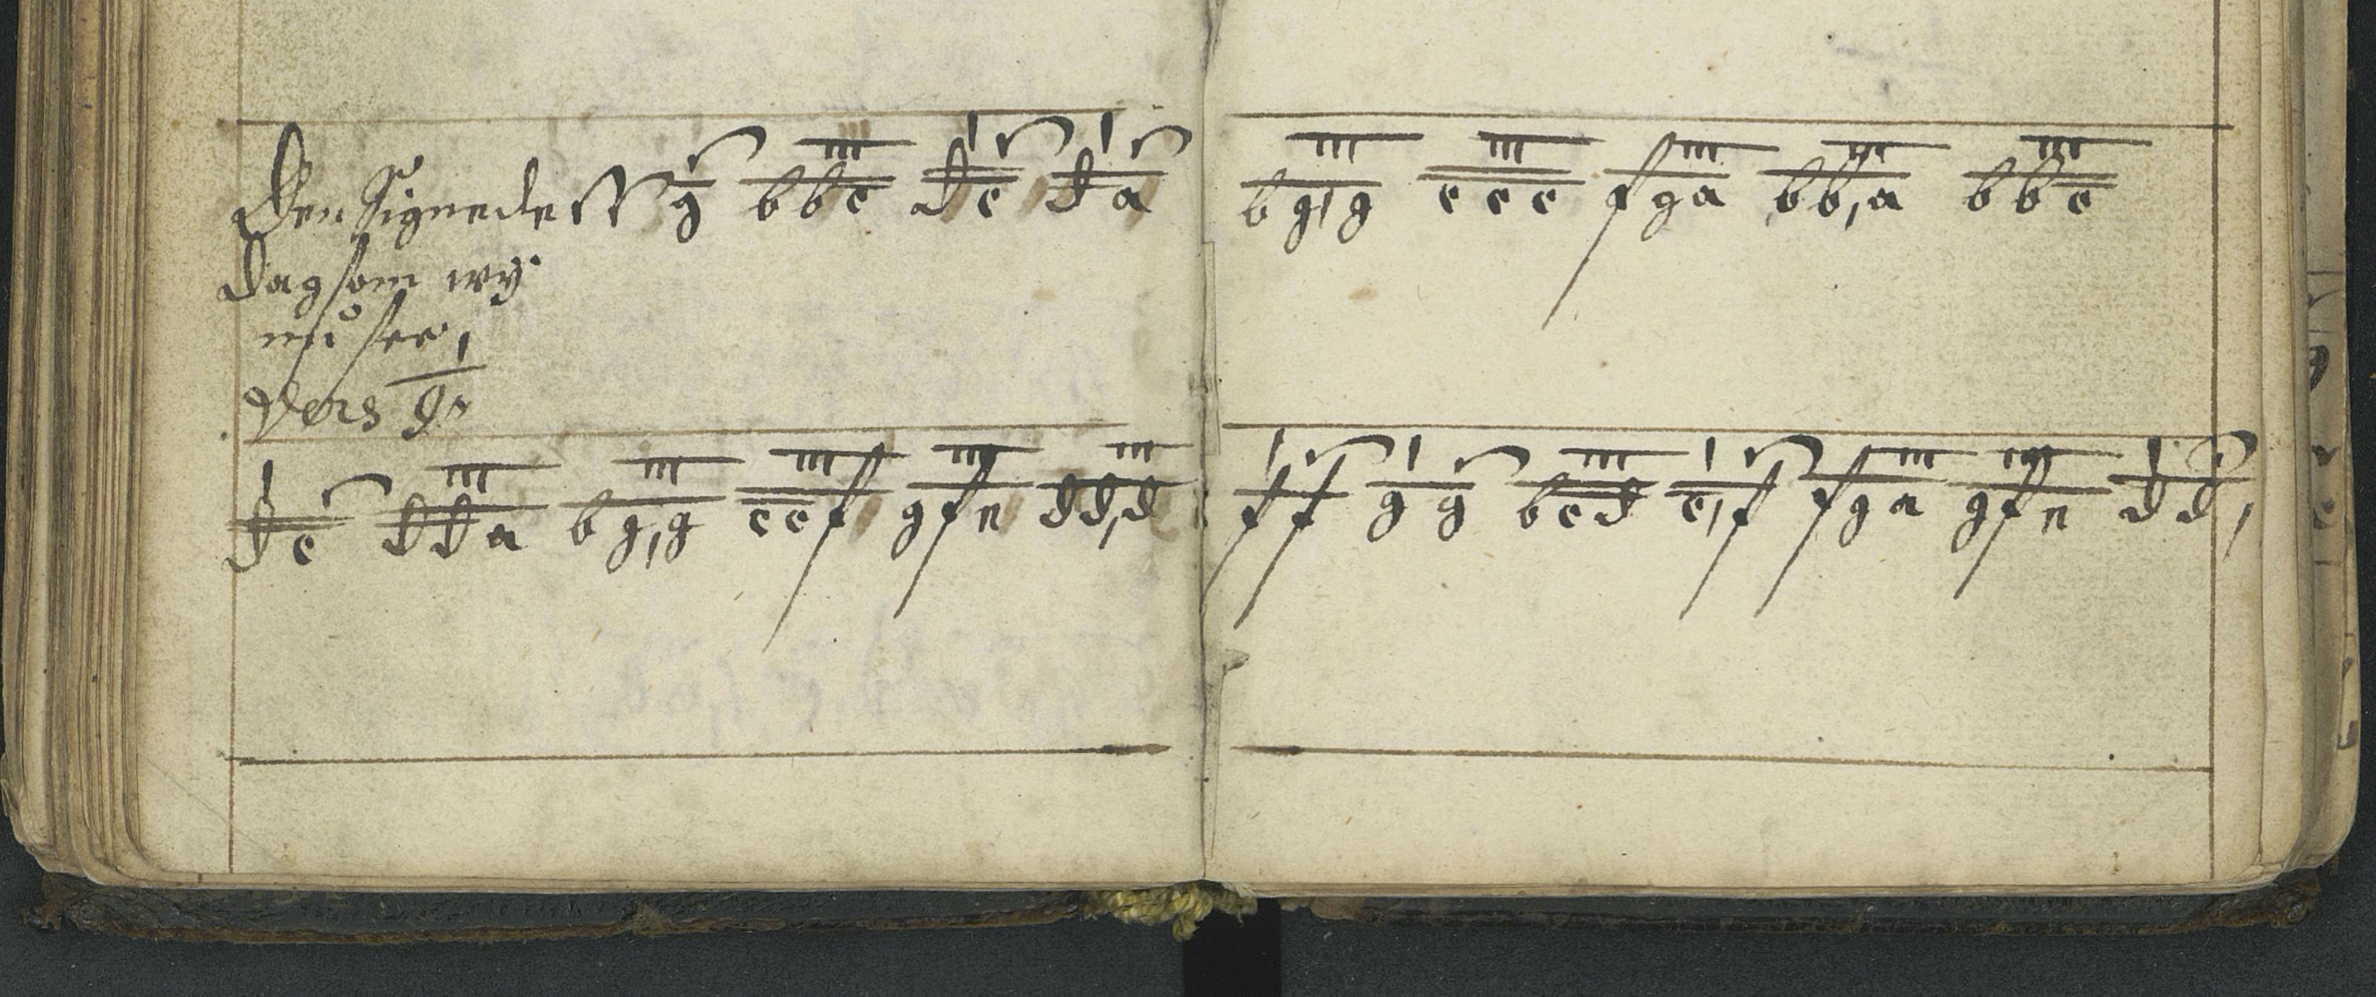 Den Signede g bbc dc da bg,g ccc fga bb,a bbc
Dag som wy
nu see,
Vers 9.
dc dda bg,g ccf gfe dd,d ff gg bcd c,f fga gfe dd,